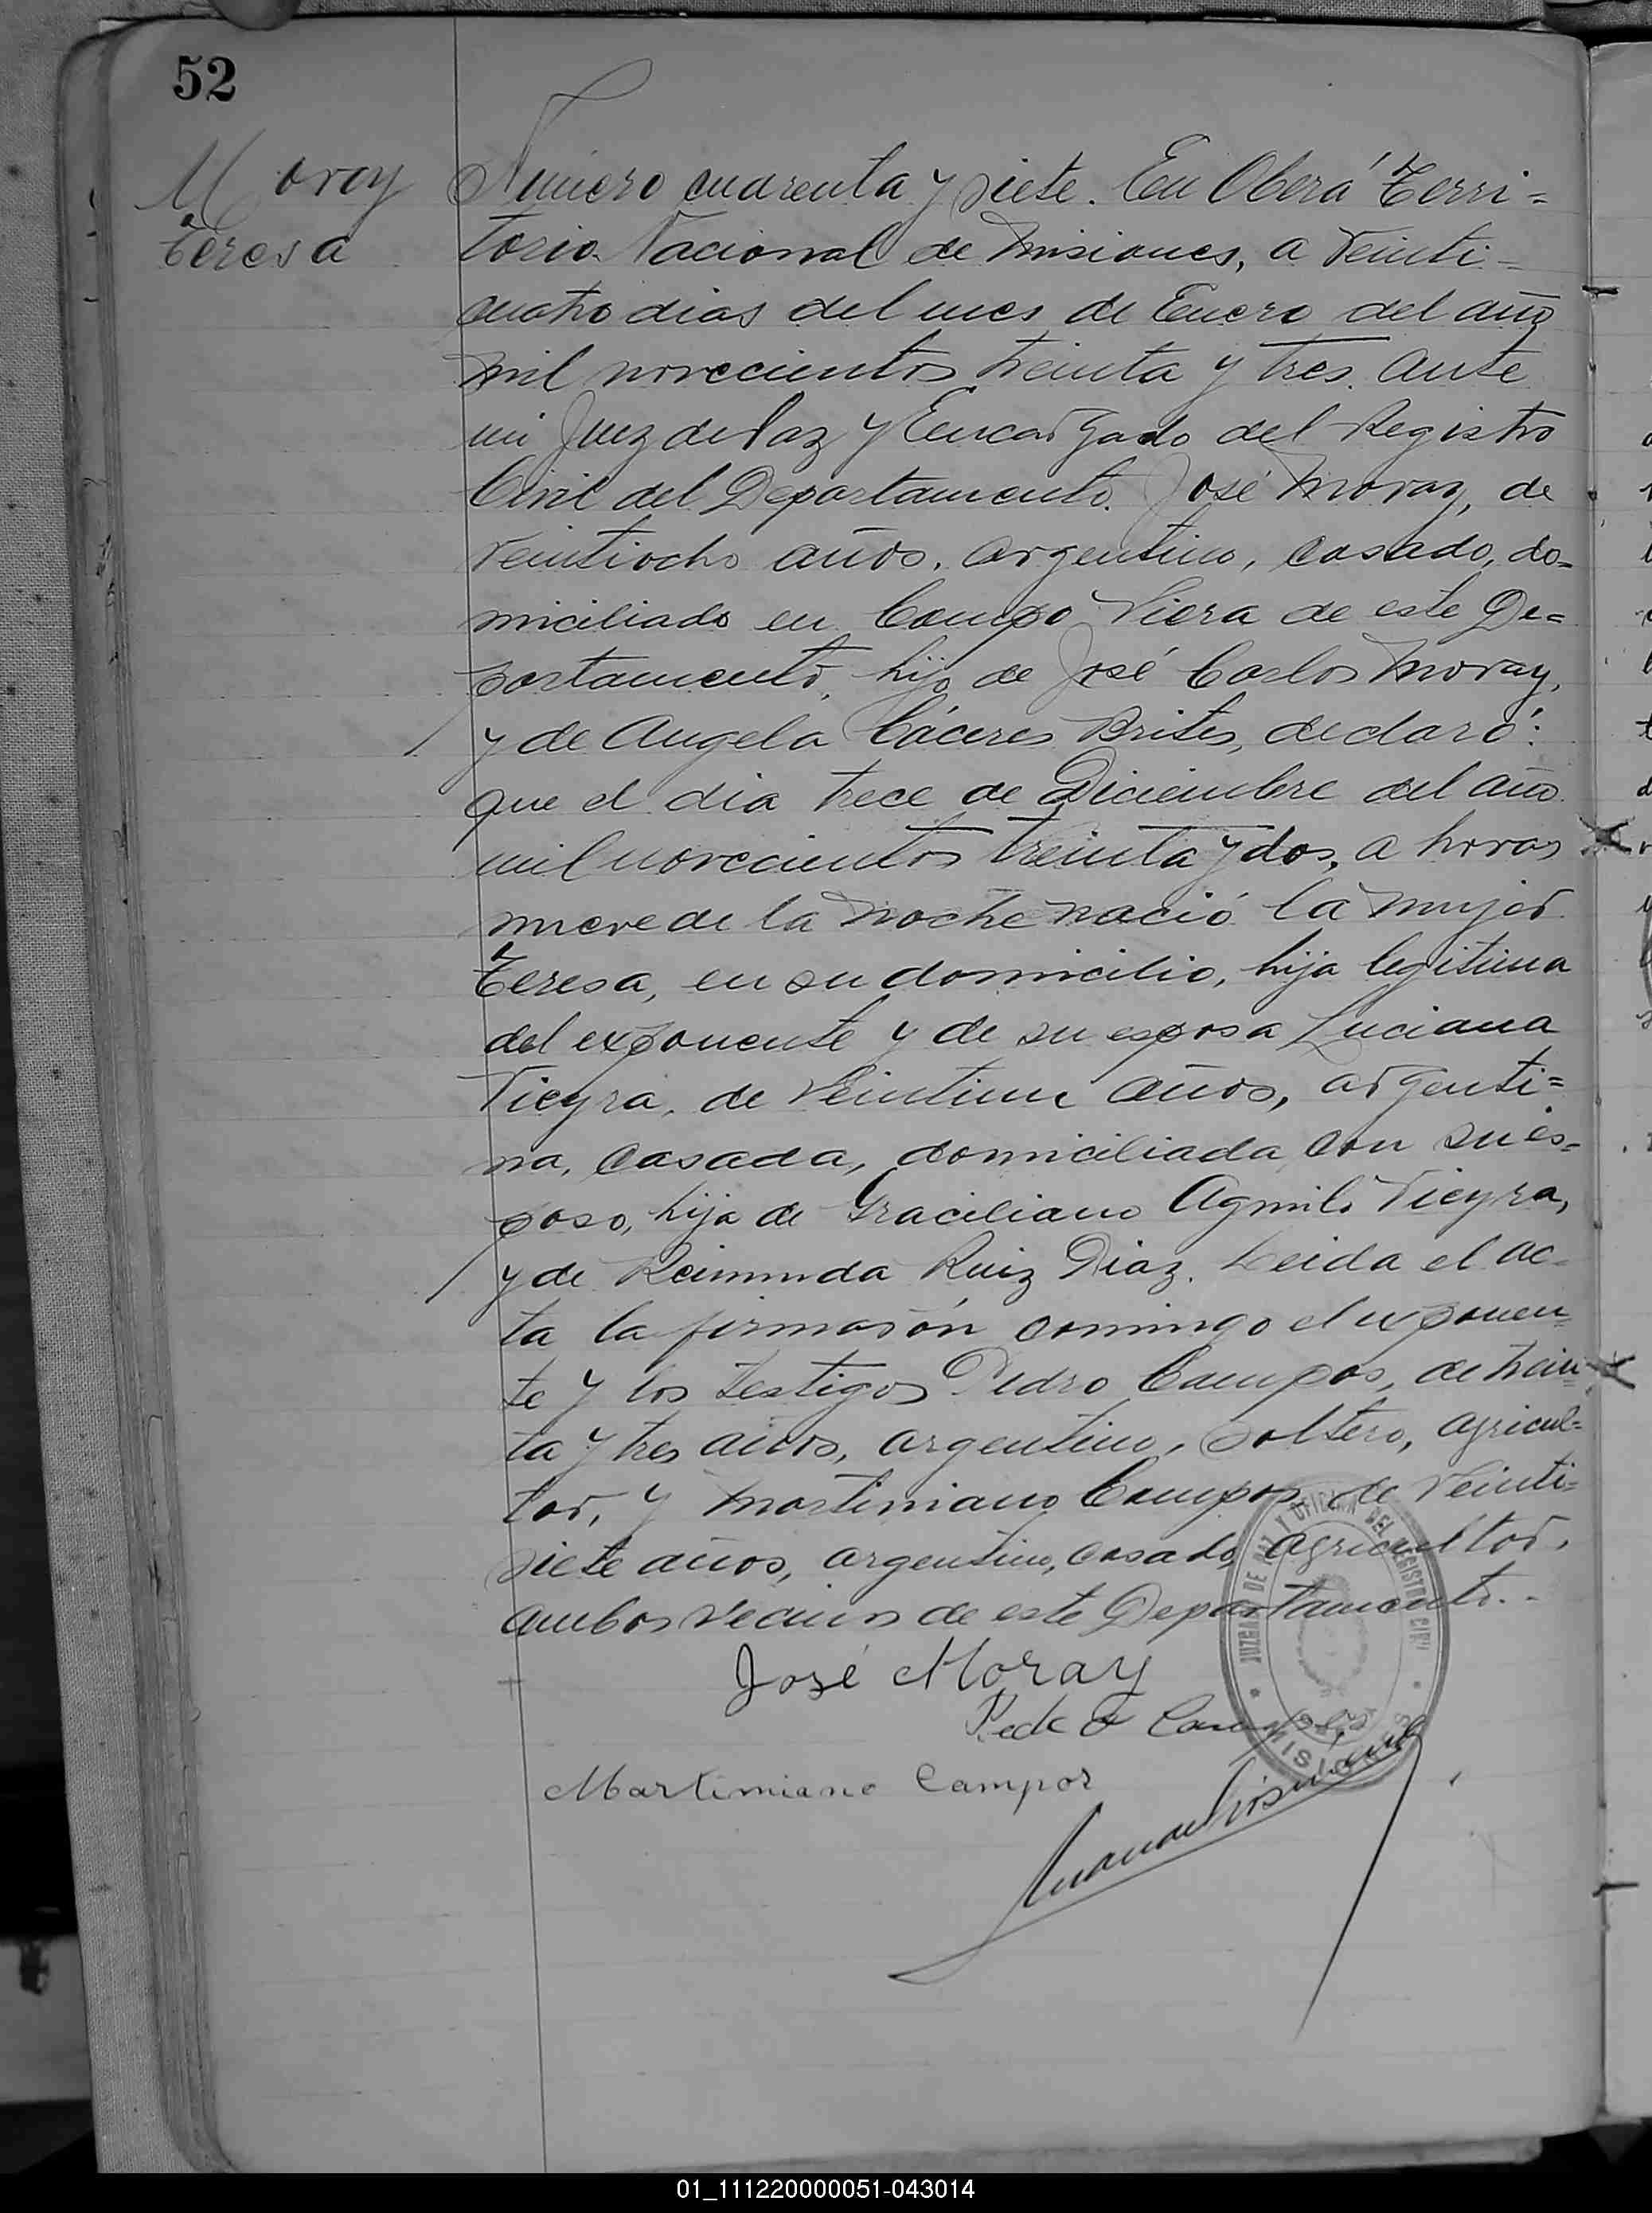 52
Moray
Teresa
Número cuarenta y siete. En Oberá Terri=
torio Nacional de Misiones, a veinti-
cuatro dias del mes de Enero del año
mil novecientos treinta y tres. Ante
mi Juez de Paz y Encargado del Registro
Civil del Departamento. José Moray, de
veintiocho años, argentino, casado, do=
miciliado en Campo Viera de este De=
partamento, hijo de José Carlos Moray,
y de Angela Cáceres Brites, declaró:
que el dia trece de Diciembre del año
mil novecientos treinta y dos, a horas
nueve de la noche nació la mujer
Teresa, en su domicilio, hija legitima
del exponente y de su esposa Luciana
Vieyra, de veintiun años, argenti=
na, casada, domiciliada con su es=
poso, hija de Graciliano Vieyra,
y de Reimunda Ruiz Diaz. Leida el ac-
ta la firmarón conmigo el exponen=
te y los testigos Pedro Campos, de trein=
ta y tres años, argentino, soltero, agricul=
tor, y Martiniano Campos, de veinti=
siete años, argentino, casado, agricultor,
ambos vecinos de este Departamento.-
José Moray
Pedro Campos
Martimiano Campos
JUZGADO DE PAZ Y OFICINA DEL REGISTRO CIVIL
MISIONES
01_111220000051-043014